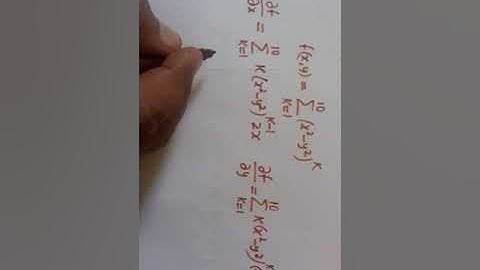 f(x,y) = \sum_{K=1}^{10} (x²-y²)^K
∂f/∂x = \sum_{K=1}^{10} K(x²-y²)^{K-1} 2x   ∂f/∂y = \sum_{K=1}^{10} K(x²-y²)^K (